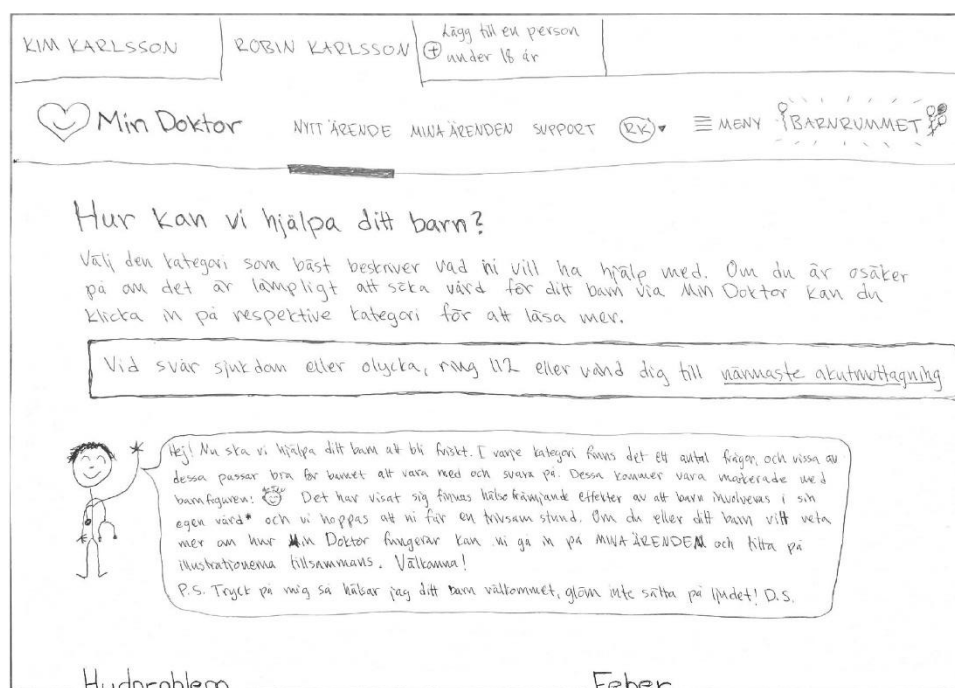 KIM KARLSSON
ROBIN KARLSSON
Lägg till en person
under 18 år
Min Doktor
NYTT ÄRENDE
MINA ÄRENDEN
SUPPORT
RK
MENY
BARNRUMMET
Hur kan vi hjälpa ditt barn?
Välj den kategori som bäst beskriver vad ni vill ha hjälp med. Om du är osäker
på om det är lämpligt att söka vård för ditt barn via Min Doktor kan du
klicka in på respektive kategori för att läsa mer.
Vid svår sjukdom eller olycka, ring 112 eller vänd dig till närmaste akutmottagning
Hej! Nu ska vi hjälpa ditt barn att bli friskt. I varje kategori finns det ett antal frågor, och vissa av
dessa passar bra för barnet att vara med och svara på. Dessa kommer vara markerade med
barnfiguren: Det har visat sig finnas hälsofrämjande effekter av att barn involveras i sin
egen vård* och vi hoppas att ni får en trivsam stund. Om du eller ditt barn vill veta
mer om hur Min Doktor fungerar kan ni gå in på MINA ÄRENDEN och titta på
illustrationerna tillsammans. Välkomna!
P.S. Tryck på mig så hälsar jag ditt barn välkommet, glöm inte sätta på ljudet! D.S.
Hudproblem
Feber